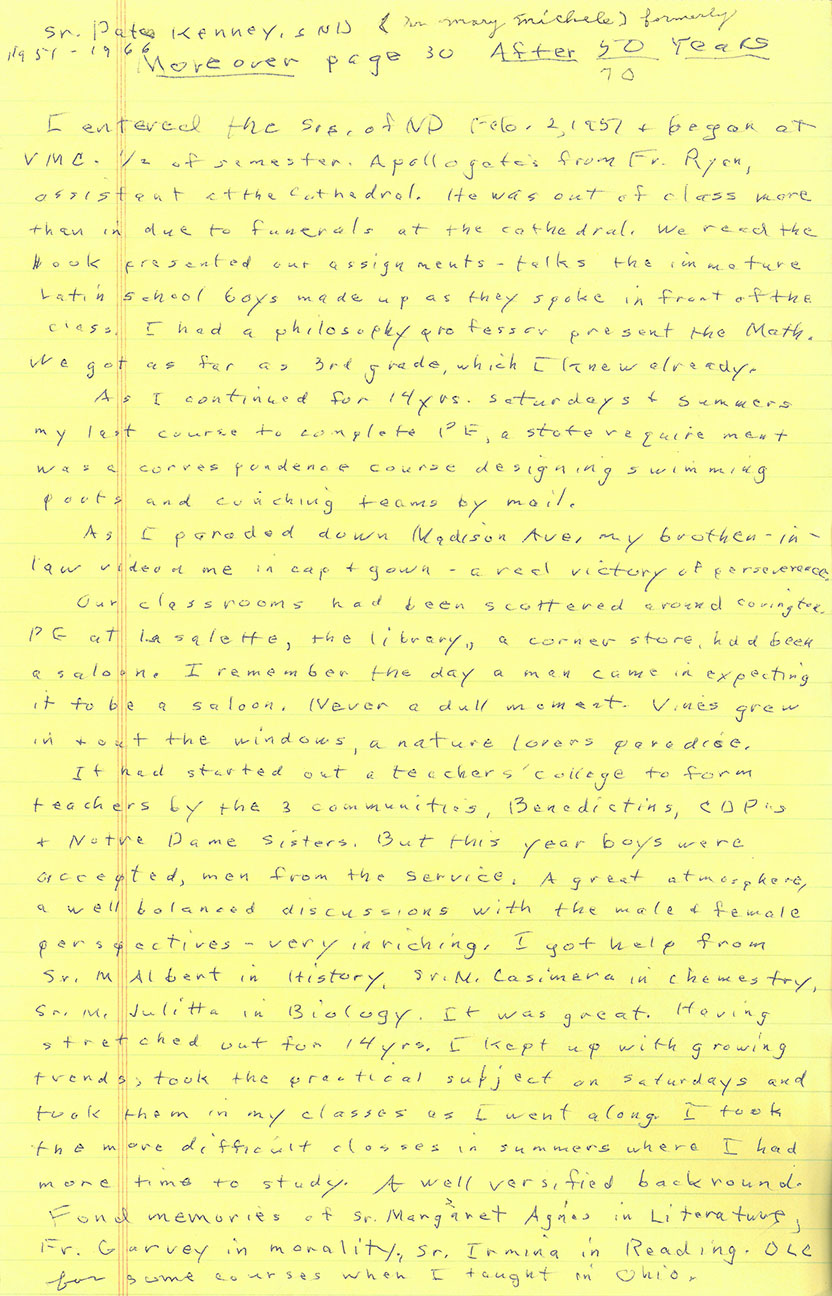 Sr. Pat Kenney, SND (Sr mary michele) formerly
1951 - 1966
Moreover page 30 After 50 Years
70
I entered the Srs. of ND Feb. 2, 1957 + began at
VMC. 1/2 of semester. Apollogates from Fr. Ryan,
assistant at the Cathedral. He was out of class more
than in due to funerals at the cathedral. We read the
book presented our assignments - talks the immature
Latin school boys made up as they spoke in front of the
class. I had a philosophy professor present the Math.
We got as far as 3rd grade, which I knew already.
As I continued for 14 yrs. Saturdays + Summers
my last course to complete PE, a state requirement
was a correspondence course designing swimming
pools and coaching teams by mail.
As I paraded down Madison Ave, my brother-in-
law videod me in cap + gown - a real victory of perseverence.
Our classrooms had been scattered around Covington.
PE at La salette, the library, a corner store, had been
a saloon. I remember the day a man came in expecting
it to be a saloon. Never a dull moment. Vines grew
in + out the windows, a nature lovers paradise.
It had started out a teachers' college to form
teachers by the 3 communities, Benedictins, CDP's
+ Notre Dame Sisters. But this year boys were
accepted, men from the service. A great atmosphere,
a well balanced discussions with the male + female
perspectives - very inriching. I got help from
Sr. M Albert in History, Sr. M. Casimera in chemestry,
Sr. M. Julitta in Biology. It was great. Having
stretched out for 14 yrs. I kept up with growing
trends, took the practical subject on Saturdays and
took them in my classes as I went along. I took
the more difficult classes in summers where I had
more time to study. A well versified backround.
Fond memories of Sr. Margaret Agnes in Literature,
Fr. Garvey in morality, Sr. Irmina in Reading. OLC
for some courses when I taught in Ohio.